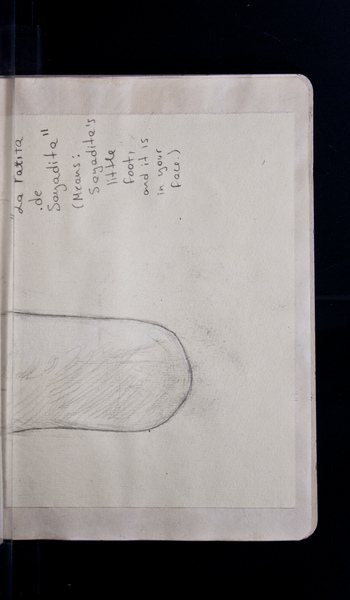 "La Patita
de
Sayadita"
(Means:
Sayadita's
little
foot,
and it is
in your
face.)